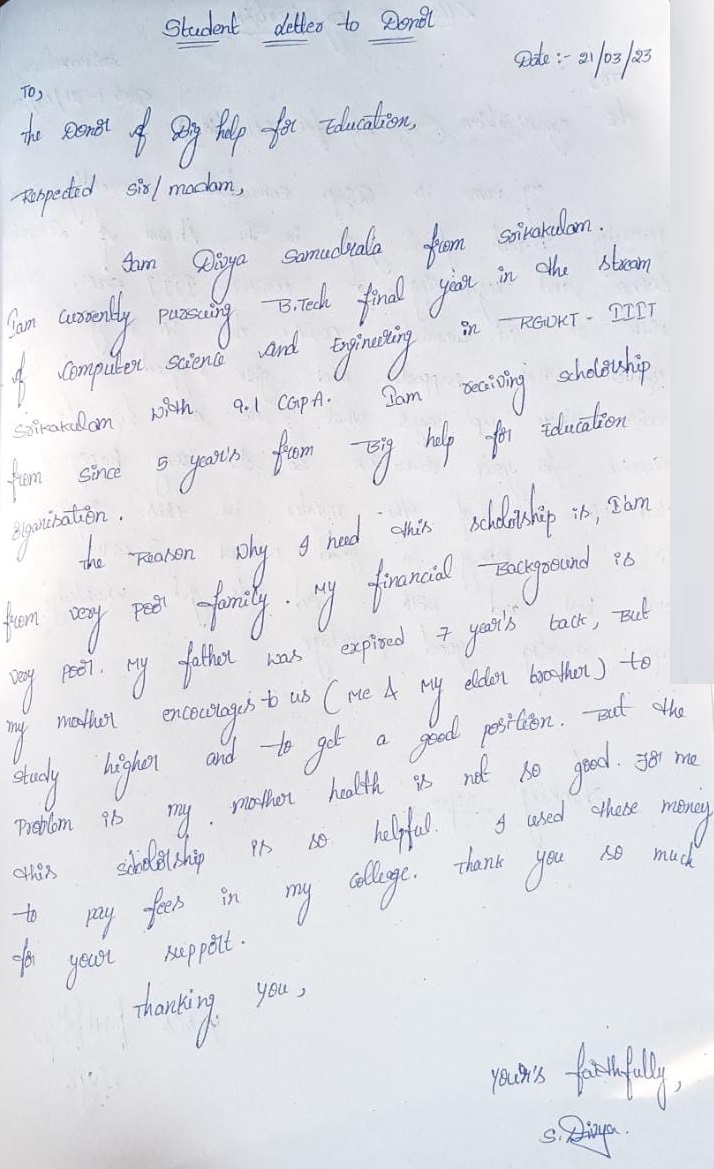 Student letter to Donor
Date :- 21/03/23
To,
The Donor of Big help for Education,
Respected sir/ madam,
Iam Divya Samudrala from Srikakulam.
Iam currently pursuing B.Tech final year in the stream
of Computer Science and Engineering in RGUKT - IIIT
Srikakulam with 9.1 CGPA. Iam receiving scholorship
from since 5 year's from Big help for Education
organisation.
The Reason why I need this scholorship is, I'am
from very poor family. My financial Background is
very poor. My father was expired 7 year's back, But
my mother encourages to us (Me & My elder brother) to
study higher and to get a good position. But the
problem is my mother health is not so good. For me
this scholorship is so helpful. I used these money
to pay fees in my college. Thank you so much
for your support.
Thanking you,
Your's faithfully,
S. Divya.